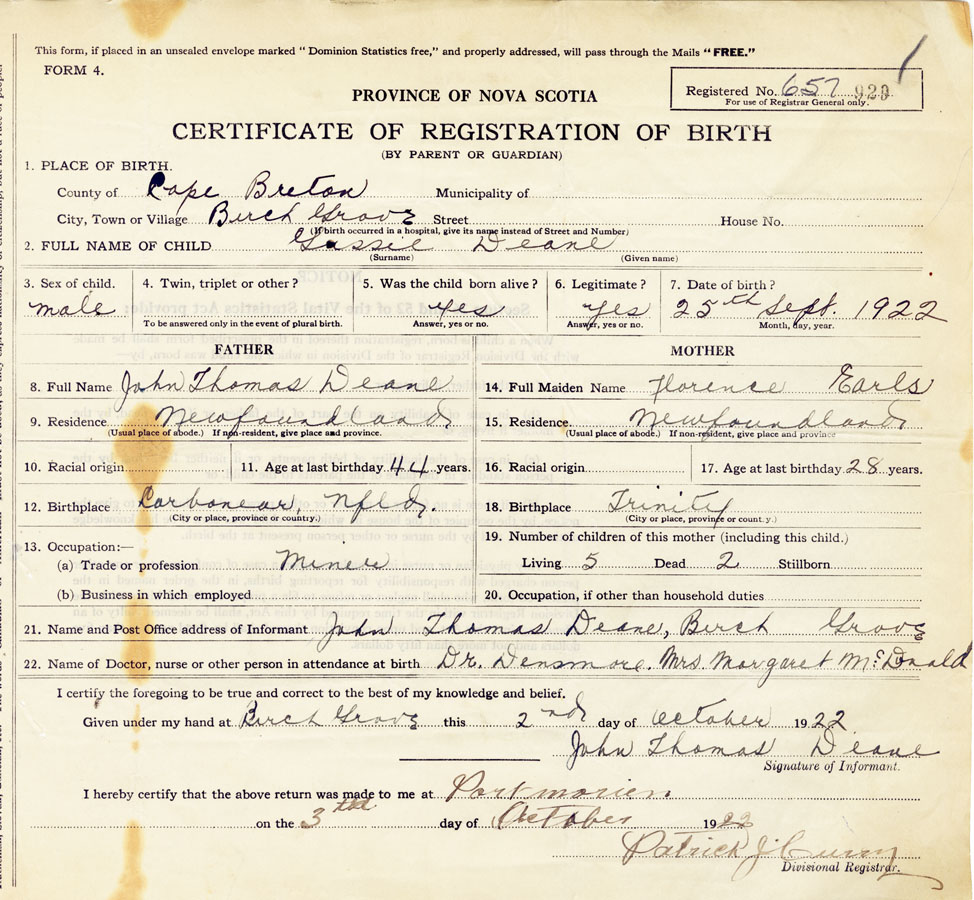 This form, if placed in an unsealed envelope marked "Dominion Statistics free," and properly addressed, will pass through the Mails "FREE."
FORM 4.
Registered No. 657 929
For use of Registrar General only.
PROVINCE OF NOVA SCOTIA
CERTIFICATE OF REGISTRATION OF BIRTH
(BY PARENT OR GUARDIAN)
1. PLACE OF BIRTH.
County of Cape Breton Municipality of
City, Town or Village Birch Grove Street House No.
(If birth occurred in a hospital, give its name instead of Street and Number)
2. FULL NAME OF CHILD Gussie Deane
(Surname) (Given name)
3. Sex of child. 4. Twin, triplet or other? 5. Was the child born alive? 6. Legitimate? 7. Date of birth?
male yes yes 25th Sept. 1922
To be answered only in the event of plural birth. Answer, yes or no. Answer, yes or no. Month, day, year.
FATHER MOTHER
8. Full Name John Thomas Deane 14. Full Maiden Name Florence Earls
9. Residence Newfoundland 15. Residence Newfoundland
(Usual place of abode.) If non-resident, give place and province. (Usual place of abode.) If non-resident, give place and province
10. Racial origin 11. Age at last birthday 44 years. 16. Racial origin 17. Age at last birthday 28 years.
12. Birthplace Carbonear, Nfld. 18. Birthplace Trinity
(City or place, province or country.) (City or place, province or country.)
13. Occupation:— 19. Number of children of this mother (including this child.)
(a) Trade or profession Miner Living 5 Dead 2 Stillborn
(b) Business in which employed 20. Occupation, if other than household duties
21. Name and Post Office address of Informant John Thomas Deane, Birch Grove
22. Name of Doctor, nurse or other person in attendance at birth Dr. Densmore. Mrs. Margaret McDonald
I certify the foregoing to be true and correct to the best of my knowledge and belief.
Given under my hand at Birch Grove this 2nd day of October 1922
John Thomas Deane
Signature of Informant.
I hereby certify that the above return was made to me at Port morien.
on the 3 day of October 1922
Patrick J. Curry
Divisional Registrar.